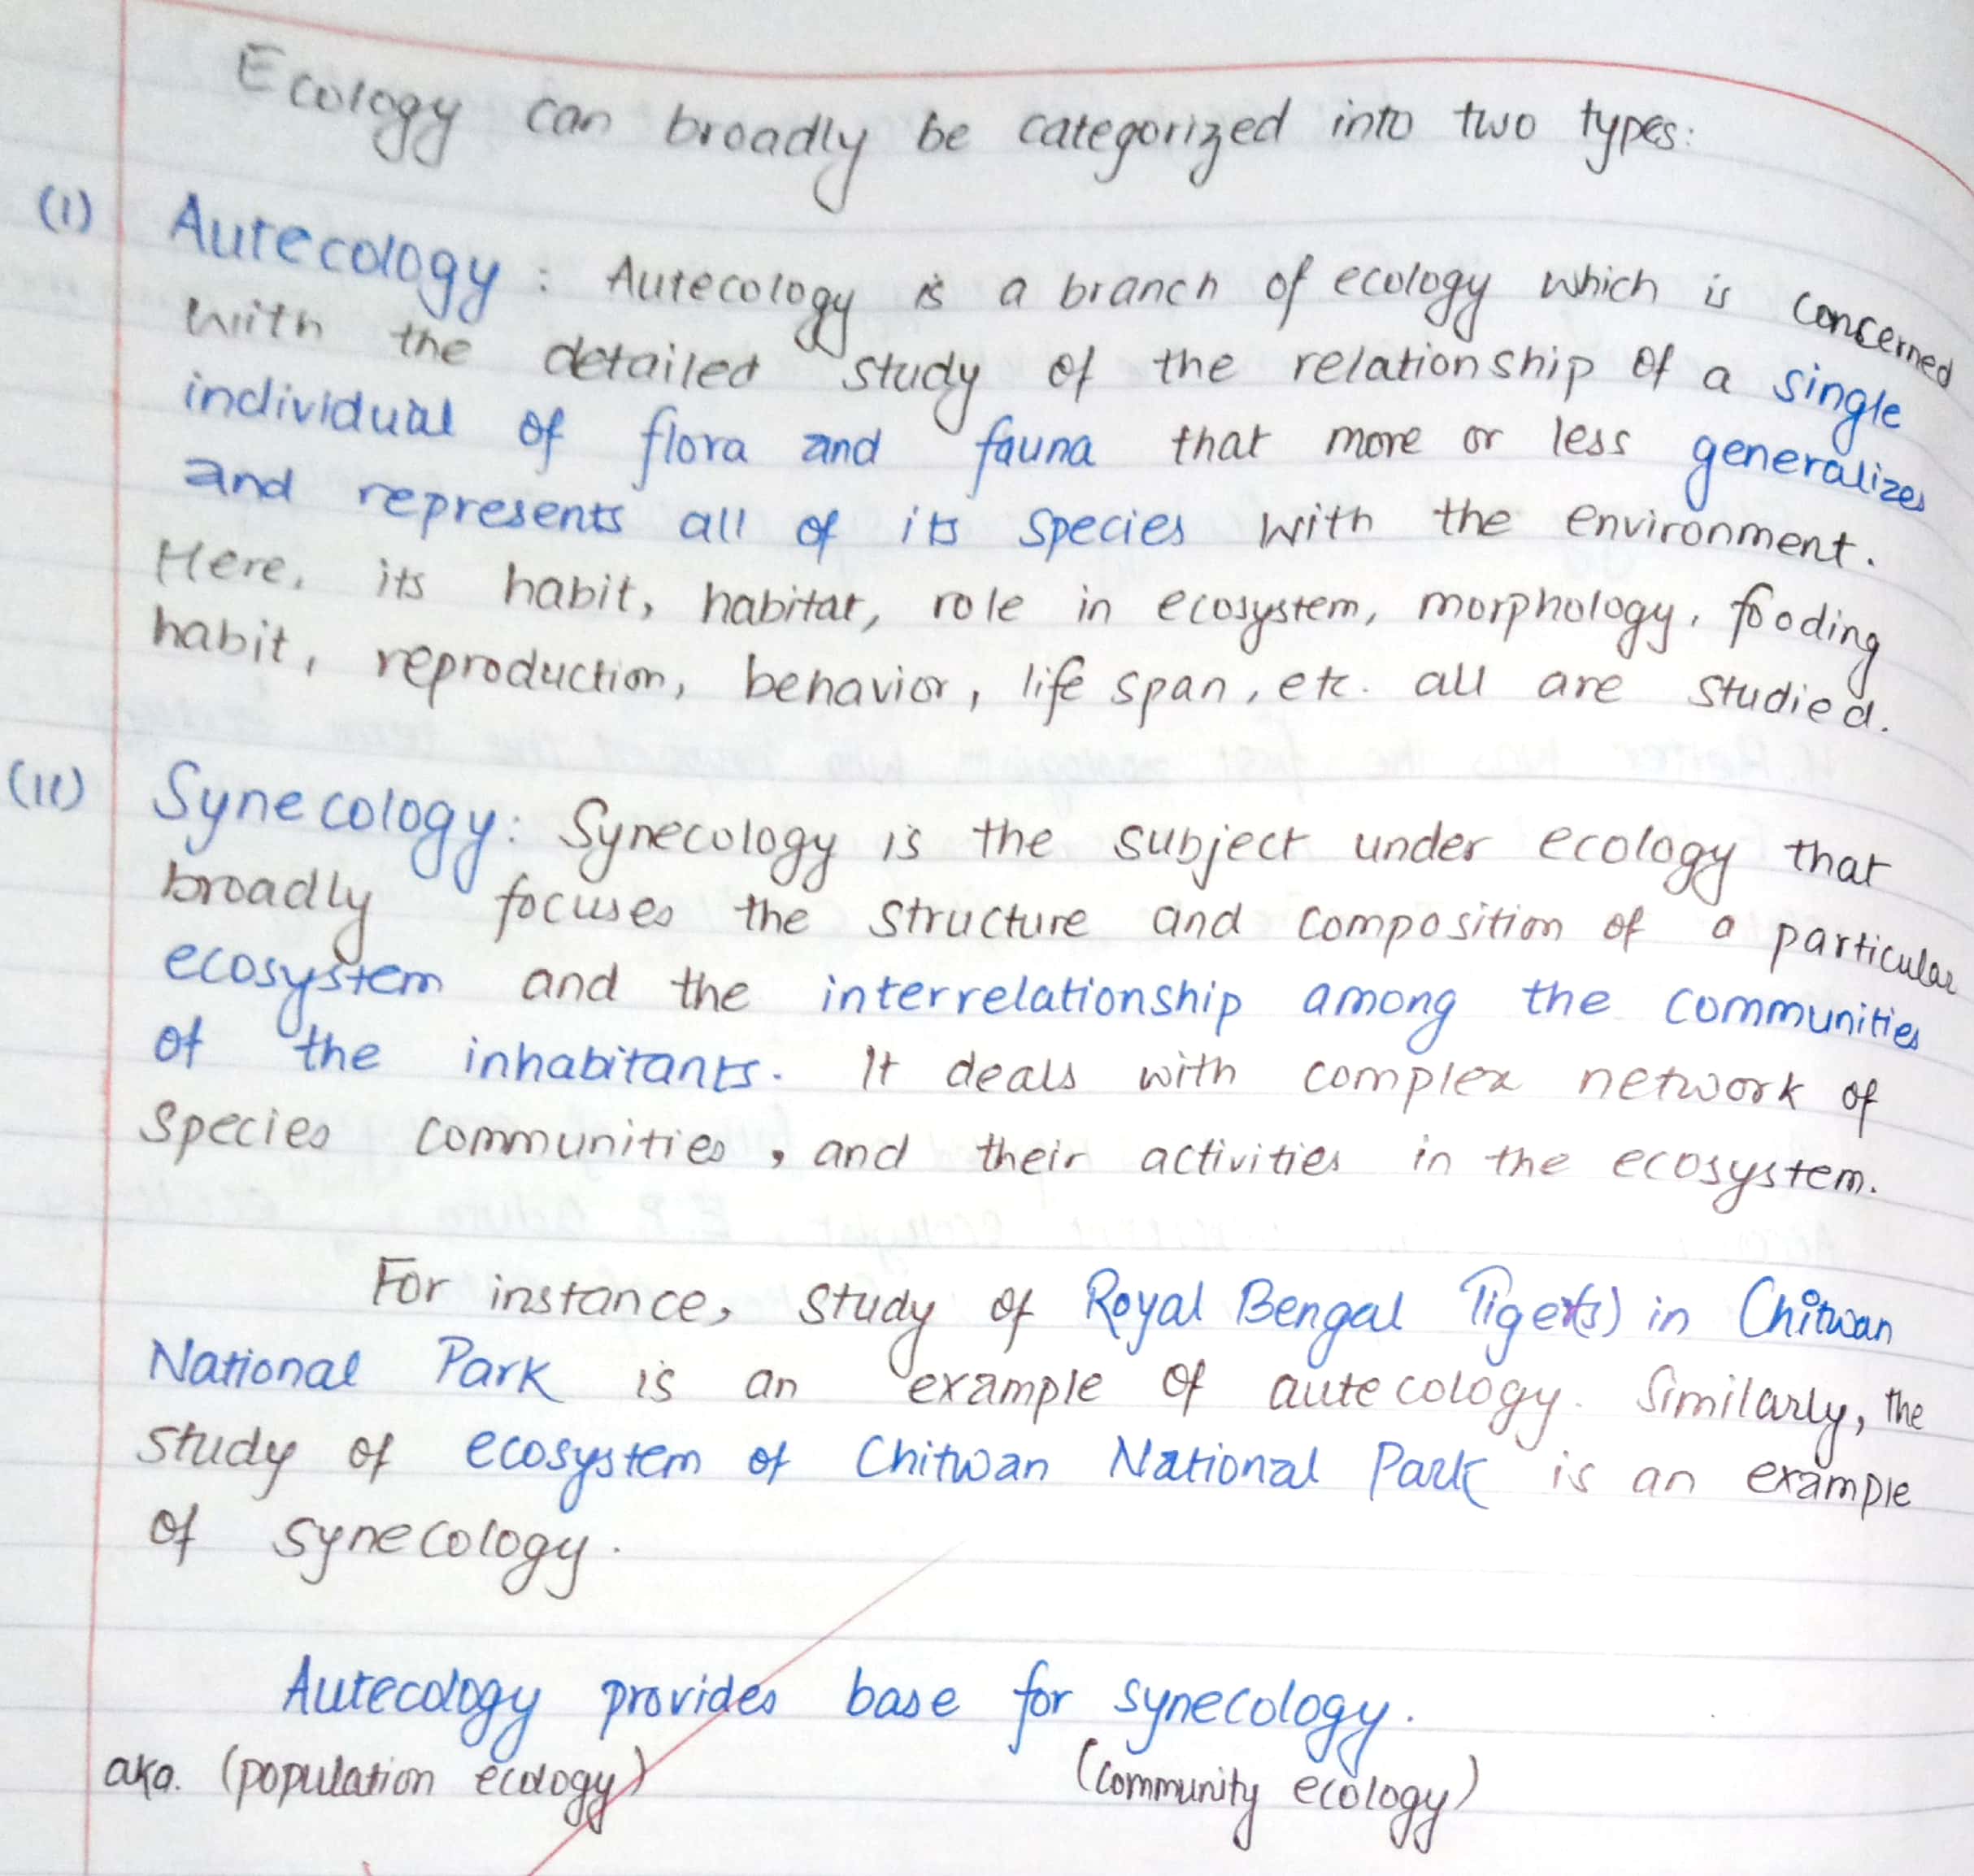 Ecology can broadly be categorized into two types:
(I) Autecology : Autecology is a branch of ecology which is concerned
with the detailed study of the relationship of a single
individual of flora and fauna that more or less generalizes
and represents all of its species with the environment.
Here, its habit, habitat, role in ecosystem, morphology, fooding
habit, reproduction, behavior, life span, etc. all are studied.
(II) Synecology: Synecology is the subject under ecology that
broadly focuses the structure and composition of a particular
ecosystem and the interrelationship among the communities
of the inhabitants. It deals with complex network of
species communities, and their activities in the ecosystem.
For instance, study of Royal Bengal Tiger(s) in Chitwan
National Park is an example of autecology. Similarly, the
study of ecosystem of Chitwan National Park is an example
of synecology.
Autecology provides base for synecology.
aka. (population ecology) (community ecology)